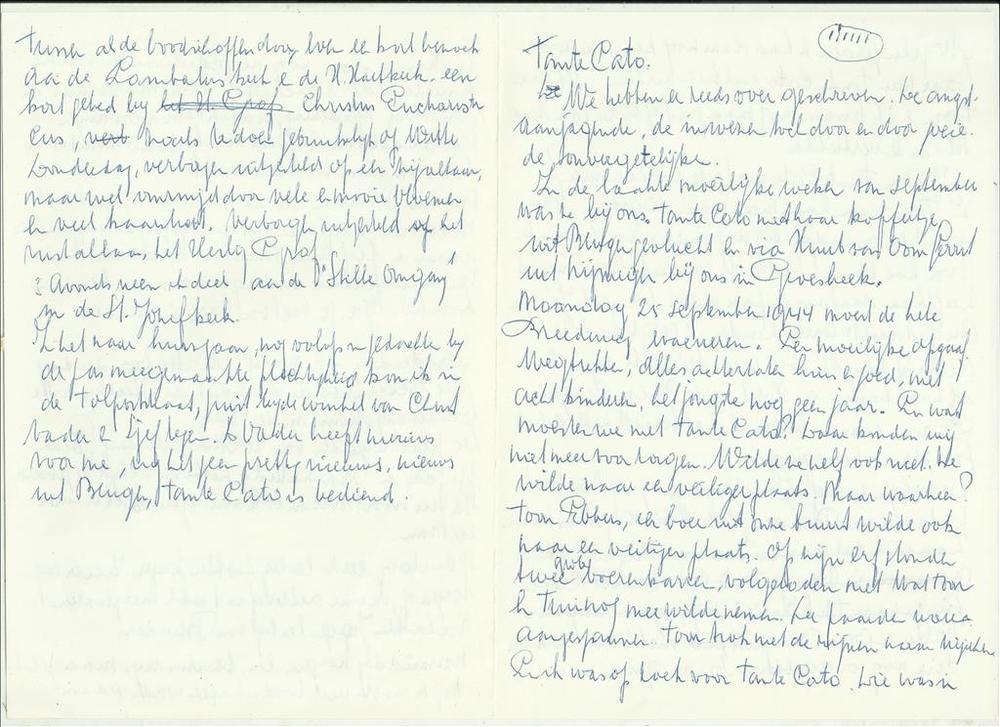 Tussen al de boodschappen door even een kort bezoek
aan de Lambertuskerk en de H. Hartkerk. een
kort gebed bij het H. Graf Christus Eucharisti
cus, niet zoals te doen gebruikelijk op Witte
Donderdag, verborgen uitgesteld op een zijaltaar,
maar wel omringd door vele en mooie bloemen
en veel kaarslicht. verborgen uitgesteld op het
rustaltaar, het Heilig Graf
's Avonds neem ik deel aan de "Stille Omgang"
in de St. Jozefkerk.
het naar huis gaan, nog volop in gedachten bij
de pas meegemaakte plechtigheid kom ik in
de straat, juist bij de winkel van
vader 2 tegen. Vader heeft nieuws
voor me, nog geen prettig nieuws, nieuws
uit Bergen, tante Cato is bediend.
Tante Cato.
We hebben er reeds over geschreven. De angst-
aanjagende, de in wezen toch door en door goeie.
de onvergetelijke.
In de laatste moeilijke weken van september
was ze bij ons. Tante Cato met haar koffertje
uit Bergen gevlucht en via Huub van Oom Gerrit
uit Nijmegen bij ons in Groesbeek.
Maandag 25 september 1944 moest de hele
Breedeweg evacueren. Een moeilijke opgaaf
Wegtrekken, alles achterlaten huis en goed, met
acht kinderen, het jongste nog geen jaar. En wat
moesten we met tante Cato? Daar konden wij
niet meer voor zorgen. Wilde ze zelf ook niet. Ze
wilde naar een veiliger plaats. Maar waarheen?
Toon Ebbers, een boer uit onze buurt wilde ook
naar een veiliger plaats. Op zijn erf stonden
grote
twee boerenkarren, volgeladen met wat Toon
en Truihof mee wilde nemen. De paarden waren
aangespannen. Toon trok met de zijnen naar Nijmegen
En ik was op zoek voor tante Cato. Wie was in